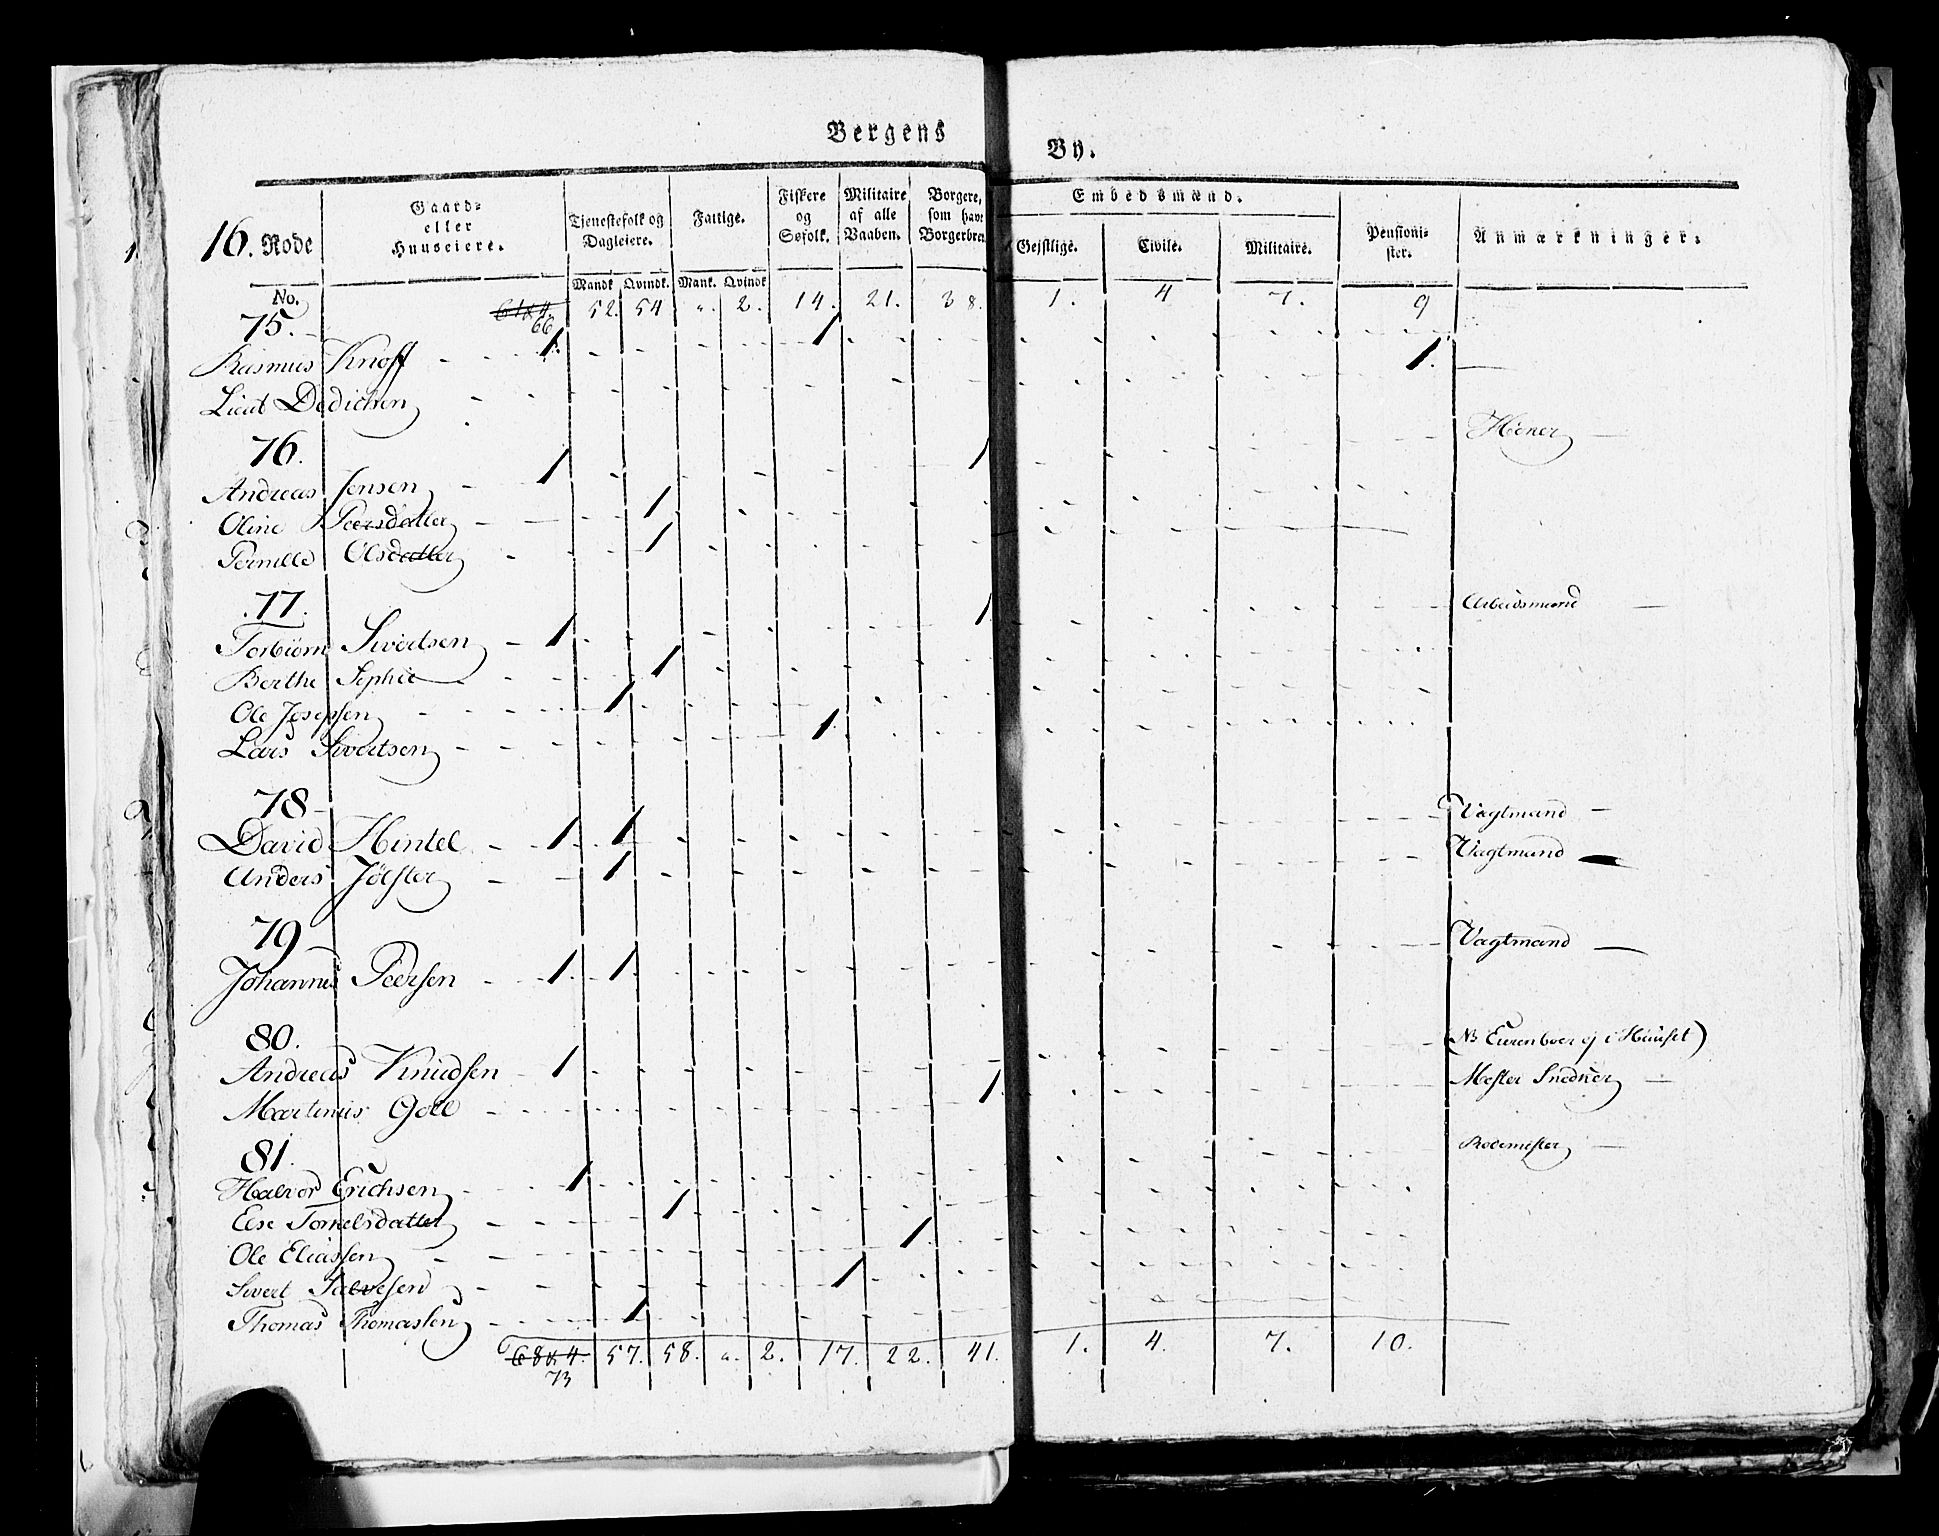 Bergens By.
16. Rode
Gaard-
eller
Huuseiere.
Tjenestefolk og
Dagleiere.
Fattige.
Fiskere
og
Søfolk.
Militaire
af alle
Vaaben.
Borgere,
som have
Borgerbrev
Embedsmænd.
Gejstlige.
Civile.
Militaire.
Pensioni-
ster.
Anmærkninger.
No.
Mandk Qvindk. Mank. Qvindk
66 52. 54 " 2. 14. 21. 38. 1. 4 7. 9
75.
Rasmus Knoff 1. 1
Lieut Dedichen 1.
76.
Andreas Jensen 1 1 Høker
Oline Peersdatter 1
Pernille Olsdatter 1
77.
Torbiørn Sivertsen 1 1 Arbeidsmand
Berthe Sophie 1
Ole Josepsen 1
Lars Sivertsen 1
78
David Hintel 1 1 Vagtmand
Anders Jölster 1 Vagtmand
79
Johannes Peersen 1. 1. Vagtmand
80.
Andreas Knudsen 1 (NB Eieren boer ej i Huuset)
Martinus Goll 1 Mester Snedker
81.
Halvor Erichsen 1 Rodemester
Else Tormelsdatter 1
Ole Eliassen 1
Sivert Salvesen 1
Thomas Thomassen 1
73 57. 58. " 2. 17. 22. 41. 1. 4. 7. 10.